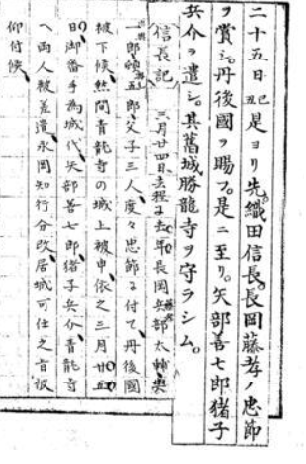 二十五日己丑是ヨリ先、織田信長、長岡藤孝ノ忠節
ヲ賞シ、丹後國ヲ賜フ。是ニ至リ、矢部善七郎猪子
兵介ヲ遣シ、其舊城勝龍寺ヲ守ラシム。
信長記 三月廿四日、去程に去年、長岡兵部太輔、與
一郎、頓五郎父子三人、度々忠節に付て丹後國
被下候、然間青龍寺の城上被申、依之三月廿五
日、御番手為城代矢部善七郎、猪子兵介、青龍寺
へ両人被差遣、永岡知行分改、居城可仕之旨被
仰付候、